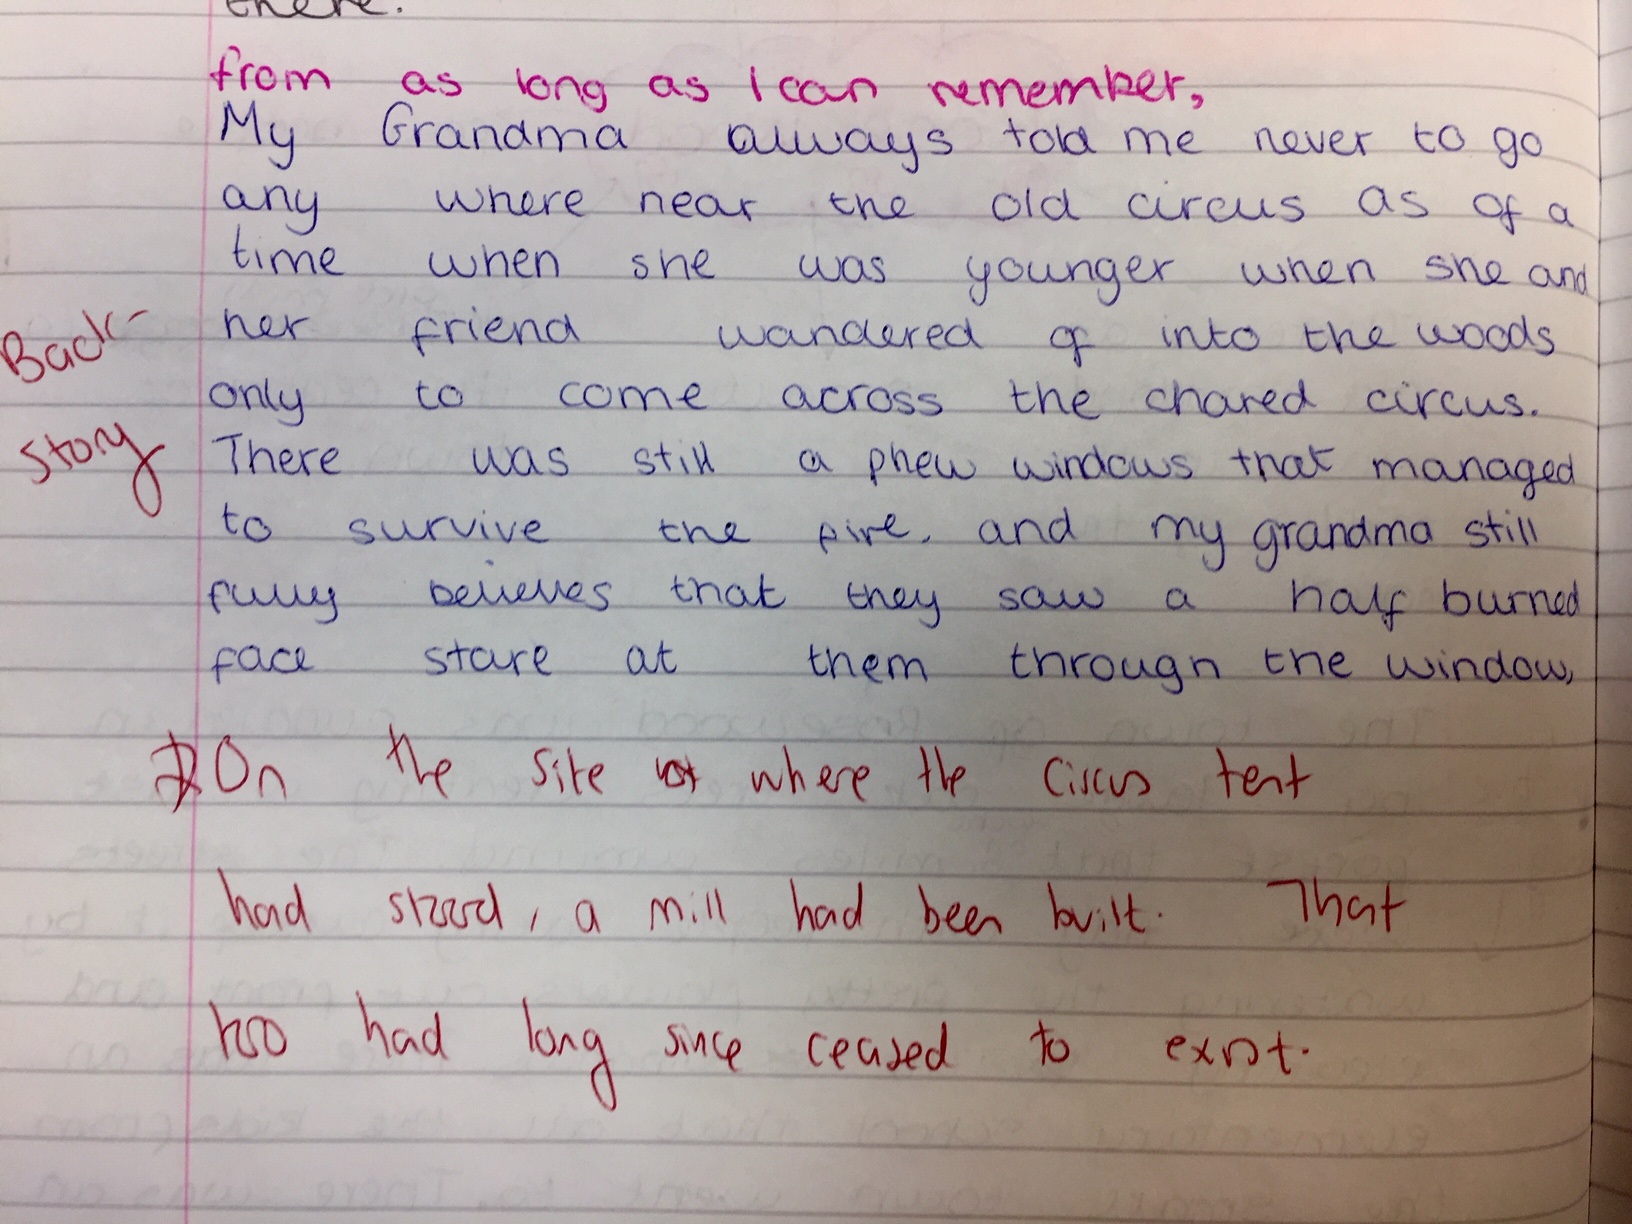 there.
from as long as I can remember,
My Grandma always told me never to go
any where near the old circus as of a
time when she was younger when she and
her friend wandered of into the woods
only to come across the chared circus.
There was still a phew windows that managed
to survive the fire. and my grandma still
fully believes that they saw a half burned
face stare at them through the window,
Back-
story
On the site where the circus tent
had stood, a mill had been built. That
too had long since ceased to exist.